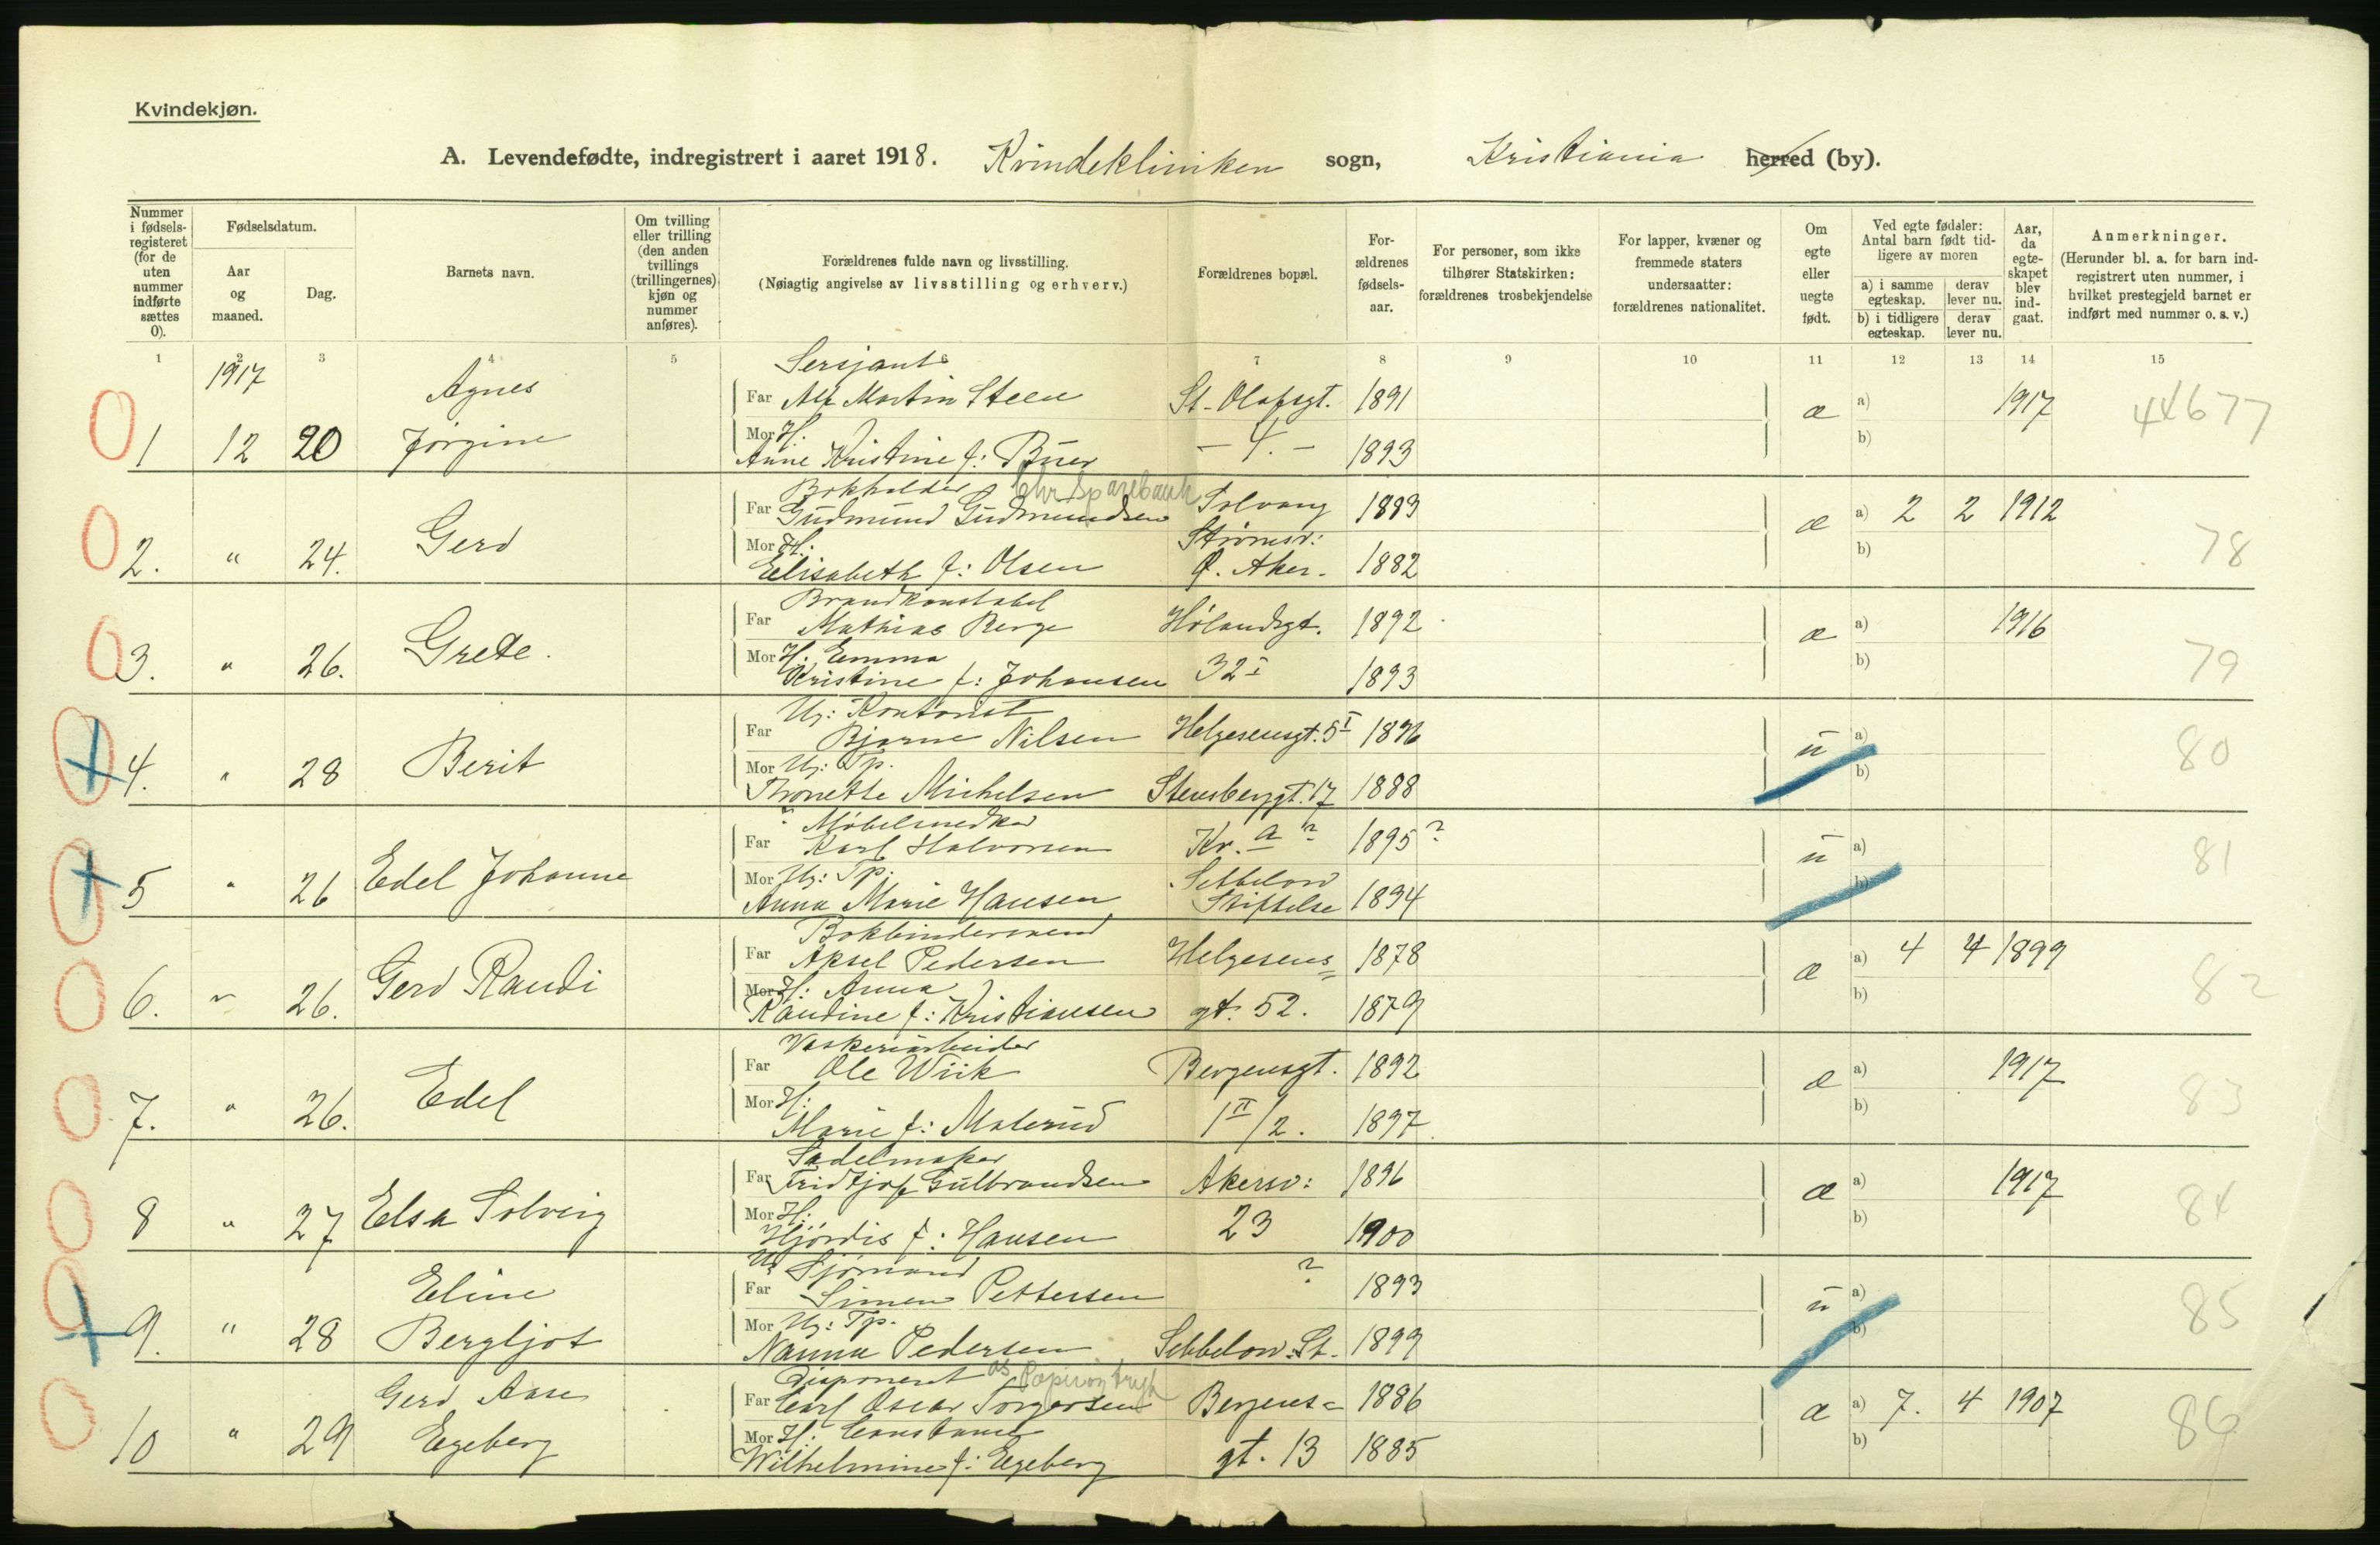 Kvindekjøn.
A. Levendefødte, indregistrert i aaret 1918. Kvindekliniken sogn, Kristiania herred (by).
Nummer i fødselsregisteret (for de uten nummer indførte sættes 0).
Fødselsdatum.
Aar og maaned.
Dag.
Barnets navn.
Om tvilling eller trilling (den anden tvillings (trillingernes) kjøn og nummer anføres).
Forældrenes fulde navn og livsstilling.
(Nøiagtig angivelse av livsstilling og erhverv.)
Forældrenes bopæl.
Forældrenes fødselsaar.
For personer, som ikke tilhører Statskirken: forældrenes trosbekjendelse
For lapper, kvæner og fremmede staters undersaatter: forældrenes nationalitet.
Om egte eller uegte født.
Ved egte fødsler: Antal barn født tidligere av moren
a) i samme egteskap. derav lever nu.
b) i tidligere egteskap. derav lever nu.
Aar, da egteskapet blev indgaat.
Anmerkninger.
(Herunder bl. a. for barn indregistrert uten nummer, i hvilket prestegjeld barnet er indført med nummer o. s. v.)
1 2 3 4 5 6 7 8 9 10 11 12 13 14 15
1917 Agnes Sersjant
Far Alf Martin Steen St. Olafsgt. 1891 æ a) 1917 44677
0 1 12 20 Jørgine Mor H. – 4. – b)
Anne Kristine f: Buer 1893
Bokholder Chr Sparebank
Far Gudmund Gudmundsen Solvang 1883 æ a) 2 2 1912
0 2. " 24. Gerd Mor H. Strømsv: b) 78
Elisabeth f: Olsen Ø. Aker. 1882
Brandkonstabel
Far Mathias Berge Hølandsgt. 1892 æ a) 1916
0 3. " 26. Grete. Mor H. Emma 32 I b) 79
Kristine f: Johansen 1893
Ug: Kontorist
Far Bjarne Nilsen Helgesensgt. 5 I 1896 u a) 80
0 4. " 28 Berit Mor Ug: Tp. b)
Thonette Michelsen Stensberggt. 17 1888
Møbelsnedker
Far Karl Halvorsen Kr. a ? 1895 ? u a) 81
0 5 " 26 Edel Johanne Mor Ug: Tp. Sebbelow b)
Anna Marie Hansen Stiftelse 1894
Bokbindersvend
Far Aksel Pedersen Helgesens= 1878 æ a) 4 4 1899
0 6. " 26. Gerd Randi Mor H: Anna b) 82
Randine f: Kristiansen gt. 52. 1879
Vaskeriarbeider
Far Ole Wiik Bergensgt. 1892 æ a) 1917
0 7. " 26. Edel Mor H: b) 83
Marie f: Malerud 1 II/2. 1897
Sadelmaker
Far Fridtjof Gulbrandsen Akersv: 1896 æ a) 1917
0 8 " 27 Elsa Solveig Mor H: b) 84
Hjørdis f: Hansen 23 1900
Ug Sjømand ?
Far Simen Pettersen 1893 u a)
0 9. " 28 Eline Bergljot Mor Ug: Tp. b) 85
Nanna Pedersen Sebbelow. St. 1899
Disponent Papirindustri
Far Carl Oscar Torgersen Bergens= 1886 æ a) 7. 4 1907
0 10 " 29 Gerd Aase Egeberg Mor H: Constance b) 86
Wilhelmine f: Egeberg gt. 13 1885